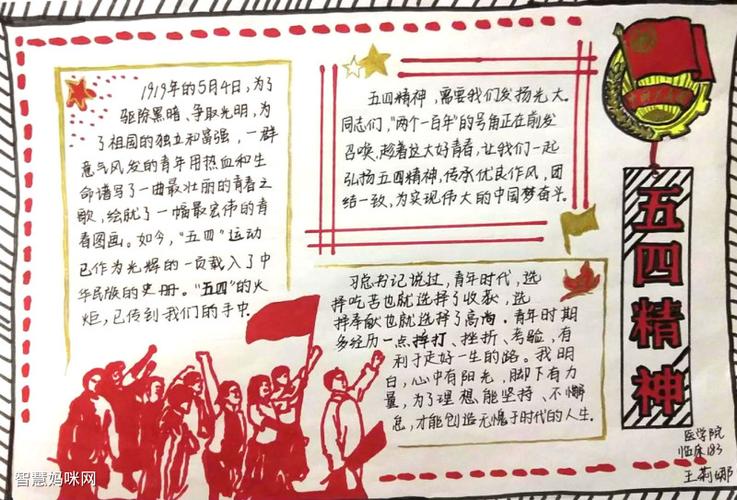 1919年的5月4日,为了
驱除黑暗、争取光明,为
了祖国的独立和富强,一群
意气风发的青年用热血和生
命谱写了一曲最壮丽的青春之
歌,绘就了一幅最宏伟的青
春图画。如今,“五四”运动
已作为光辉的一页载入了中
华民族的史册。“五四”的火
炬,已传到我们的手中.
五四精神,需要我们发扬光大。
同志们,“两个一百年”的号角正在前发
召唤,趁着这大好青春,让我们一起
弘扬五四精神,传承优良作风,团
结一致,为实现伟大的中国梦奋斗.
习总书记说过,青年时代,选
择吃苦也就选择了收获,选
择奉献也就选择了高尚.青年时期
多经历一点摔打、挫折、考验,有
利于走好一生的路。我明
白,心中有阳光,脚下有力
量,为了理想能坚持、不懈
怠,才能创造无愧于时代的人生.
五四精神
医学院
临床183
王莉娜
智慧妈咪网